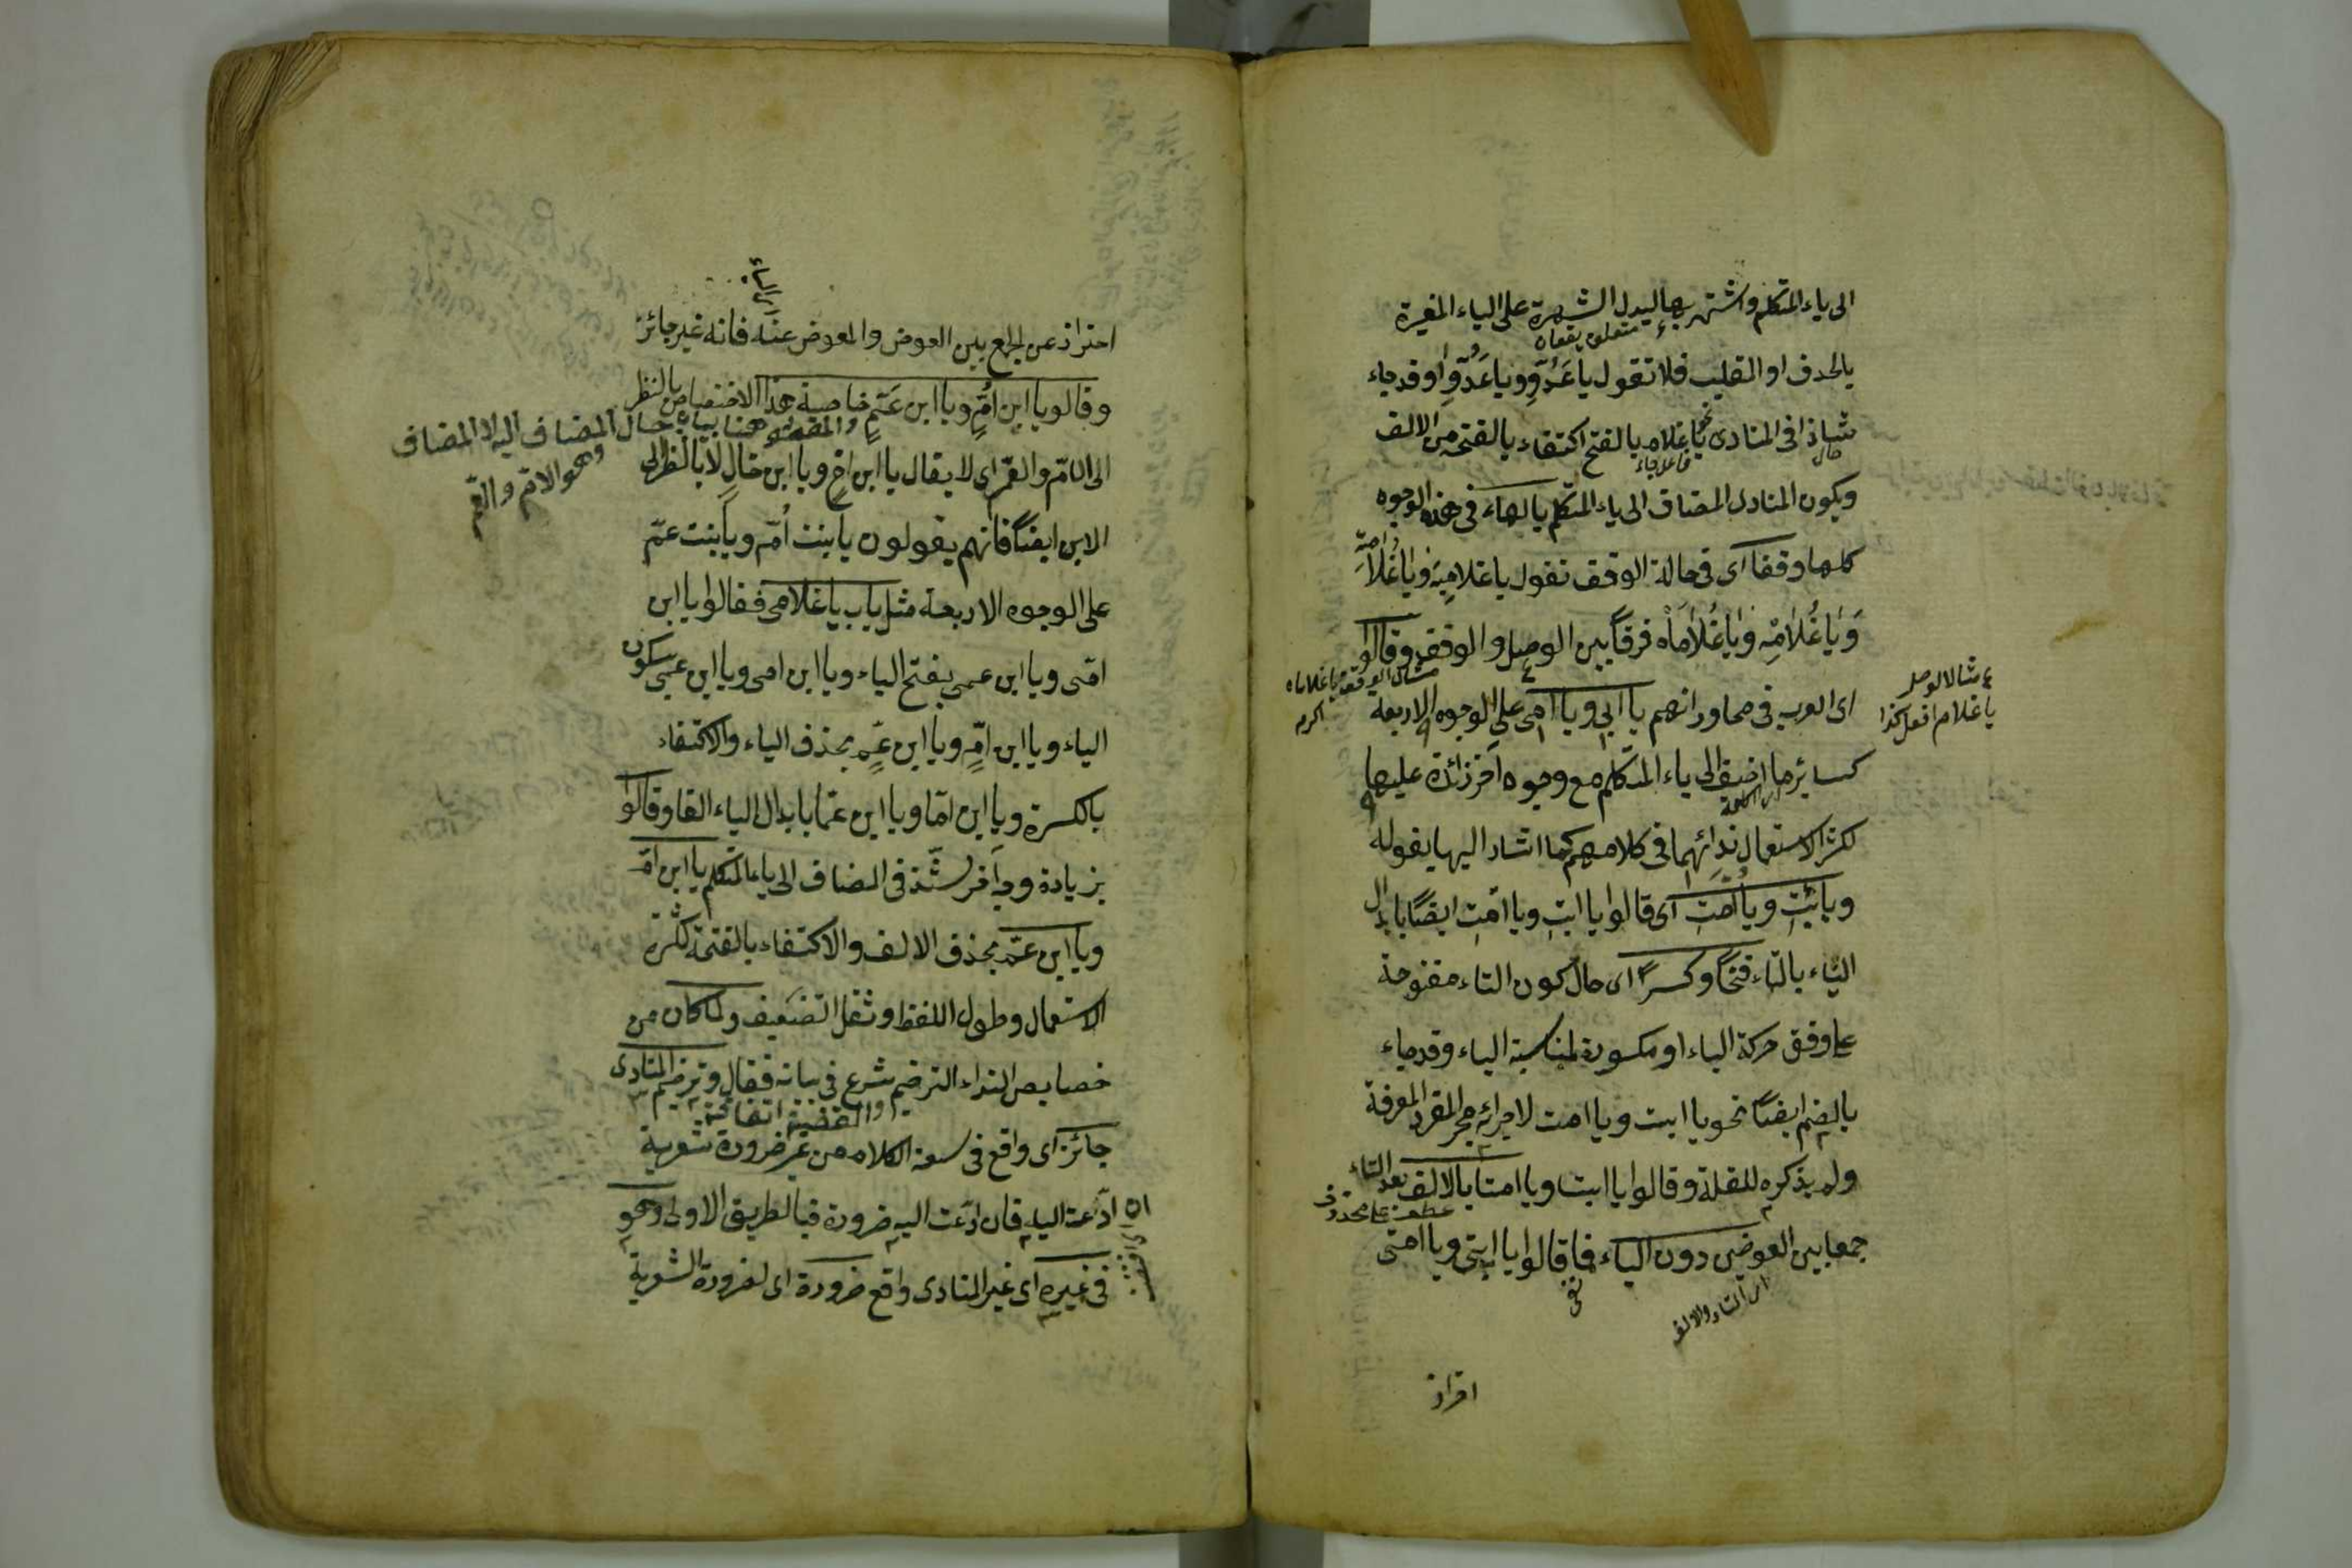 الى ياء المتكلم واشتهر بها ليدل الشهرة على الياء المغيرة
متعلق بقوله
بالحذف او القلب فلا تقول يا عَدُوِّ ويا عَدُوّا وقد جاء
شاذا فى المنادى نحو يا غلام بالفتح اكتفاء بالفتحة من الالف
حال
فاعل جاء
ويكون المنادى المضاف الى ياء المتكلم بالهاء فى هذه الوجوه
كلها وقفا اى فى حالة الوقف تقول يا غلامِيَهْ ويا غُلامِيْه
وَيا غُلامِه ويا غُلاماه فرقاً بين الوصل والوقف وقالوا
مثال الوقف يا غلاماه
اكرم
مثال الوصل
يا غلام افعل كذا
اى العرب فى محاوراتهم يا ابى ويا امى على الوجوه الاربعة
كسائر ما اضيف الى ياء المتكلم مع وجوه اخر زائدة عليها
لكثرة الاستعمال ندائهما فى كلامهم كما اشار اليها بقوله
ويا ابت ويا امت اى قالوا يا ابت ويا امت ايضًا بابدال
الياء بالتاء فتحًا وكسرًا اى حال كون التاء مفتوحة
على وفق حركة الياء او مكسورة لمناسبة الياء وقد جاء
بالضم ايضًا نحو يا ابت ويا امت لاجرائه مجرى المفرد المعرفة
ولم يذكره للقلة وقالوا يا ابتا ويا امتا بالالف بعد التاء
عطف على محذوف
جمعا بين العوضين دون الياء فما قالوا يا ابتى ويا امتى
نفى
اى التاء والالف
احترازا
احتراز عن الجمع بين العوض والمعوض عنه فانه غير جائز
اى الياء
وقالوا يا ابن اُمِّ ويا ابن عَمِّ خاصية هذا الاختصاص بالنظر
والمقصود هنا بيان حال المضاف اليه لا المضاف
وهو الام والعم
الى الام والعم اى لا يقال يا ابن اخ ويا ابن خالِ لا بالنظر الى
الابن ايضًا فانهم يقولون يا بنت اُمّ ويا بنت عمّ
على الوجوه الاربعة مثل باب يا غلامى فقالوا يا ابن
امّى ويا ابن عمى بفتح الياء ويا ابن امى ويا ابن عمى بسكون
الياء ويا ابن امِّ ويا ابن عَمِّ بحذف الياء والاكتفاء
بالكسرة ويا ابن امّا ويا ابن عمّا بابدال الياء الفا وقالوا
بزيادة وجه آخر شذّ فى المضاف الى ياء المتكلم يا ابن امّ
ويا ابن عمّ بحذف الالف والاكتفاء بالفتحة لكثرة
الاستعمال وطول اللفظ وثقل التضعيف ولما كان من
خصايص النداء الترخيم شرع فى بيانه فقال وترخيم المنادى
والقضية اتفاقية
جائز اى واقع فى سعة الكلام من غير ضرورة شعرية
ادّعت اليه فان ادّعت اليه ضرورة فبالطريق الاولى وهو
فى غيره اى غير المنادى واقع ضرورة اى لضرورة الشعرية